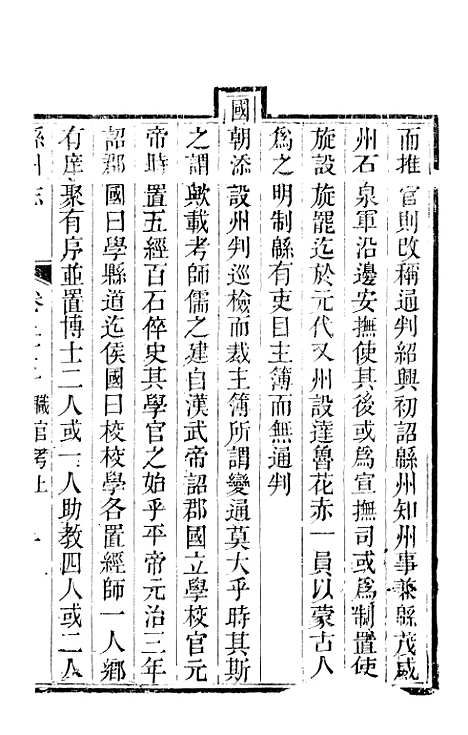 而推官則改稱通判紹興初詔緜州知州事兼緜茂威
州石泉軍沿邊安撫使其後或爲宣撫司或爲制置使
旋設旋罷迄於元代又州設達魯花赤一員以蒙古人
爲之明制緜有吏目主簿而無通判
國朝添設州判巡檢而裁主簿所謂變通莫大乎時其斯
之謂歟載考師儒之建自漢武帝詔郡國立學校官元
帝時置五經百石倅史其學官之始乎平帝元治三年
詔郡國曰學縣道迄侯國曰校校學各置經師一人鄉
有庠聚有序並置博士二人或一人助教四人或二人
州志 卷 職官考上